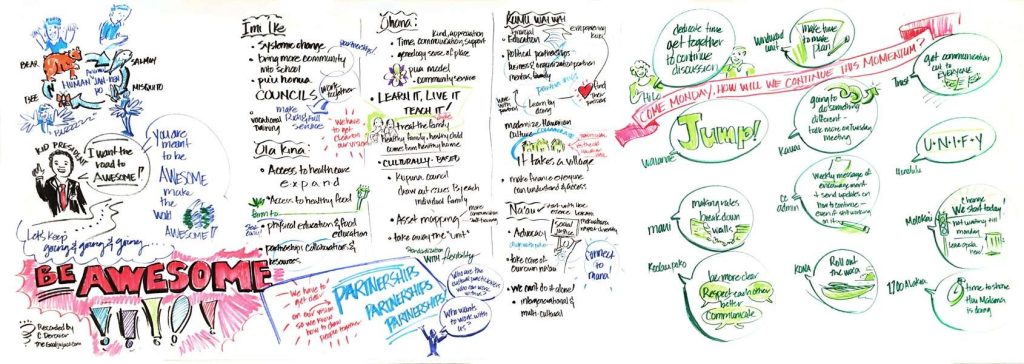 BEAR
SALMON
HUMAN
BEE
MISQUITO
BUZZZZZ
KID PRESIDENT
I want the
road to
AWESOME!!
You are
meant to
be
AWESOME
make
the
world
AWESOME!!
Let's keep
going & going & going
BE AWESOME
!!!!!
Recorded by
Imi Ike
• Systemic change
• bring more community
into school
• puʻu honua
COUNCILS
partnership!
work
together
• vocational
training
make
services
We have
to get
clear on
our vision
Ola Kino
• Access to healthcare
expand
• Access to healthy food
farm to
• physical education & food
education
• partnerships collaborations &
resources
We have to
get clear
on our
vision
so we know
how to draw
people together
PARTNERSHIPS
PARTNERSHIPS
PARTNERSHIPS
Who are
the cultural practitioners
Who wants
to work with
us?
Ohana
kind, appreciation
• Time, communication, support
• genealogy, sense of place
pua model
• community service
• LEARN IT, LIVE IT
TEACH IT!
• treat the family
healthy family, healthy child
comes from healthy home
• CULTURALLY-BASED
• Kupuna council
draw out issues by each
individual family
• Asset mapping
more
communication
• take away the "unit"
Standardization
WITH flexibility
Financial
Education
empowering
kids
• Political partnerships
business/organization partner
mentors, family
find
their
passions
Learn by
doing
• modernize Hawaiian
Culture
It takes a village
• make finance everyone
can understand & access
Naʻau
• start with love
• Advocacy
social
justice
• take care of
our own
Connect
to
mana
• We can't do it alone!
• intergenerational &
multi-cultural
COME MONDAY, HOW WILL WE CONTINUE THIS MOMENTUM?
dedicate time
get together
to continue
discussion
Hilo
windward
make time
to make
plan
get communication
out to
EVERYONE
Trust
Jump!
Waianae
going to
do something
different -
talk more on Tuesday
meeting
Kauai
U·N·I·F·Y
Honolulu
making rules
break down
walls
Maui
Weekly message of
encouragement
+ send updates on
how to continue
even if still working
on it
CC
admin
Change
We start today!
not waiting till
monday
Molokai
be more clear
Respect each other
better
Communicate
Roll out
the word
KONA
time to share
this Malama
is doing